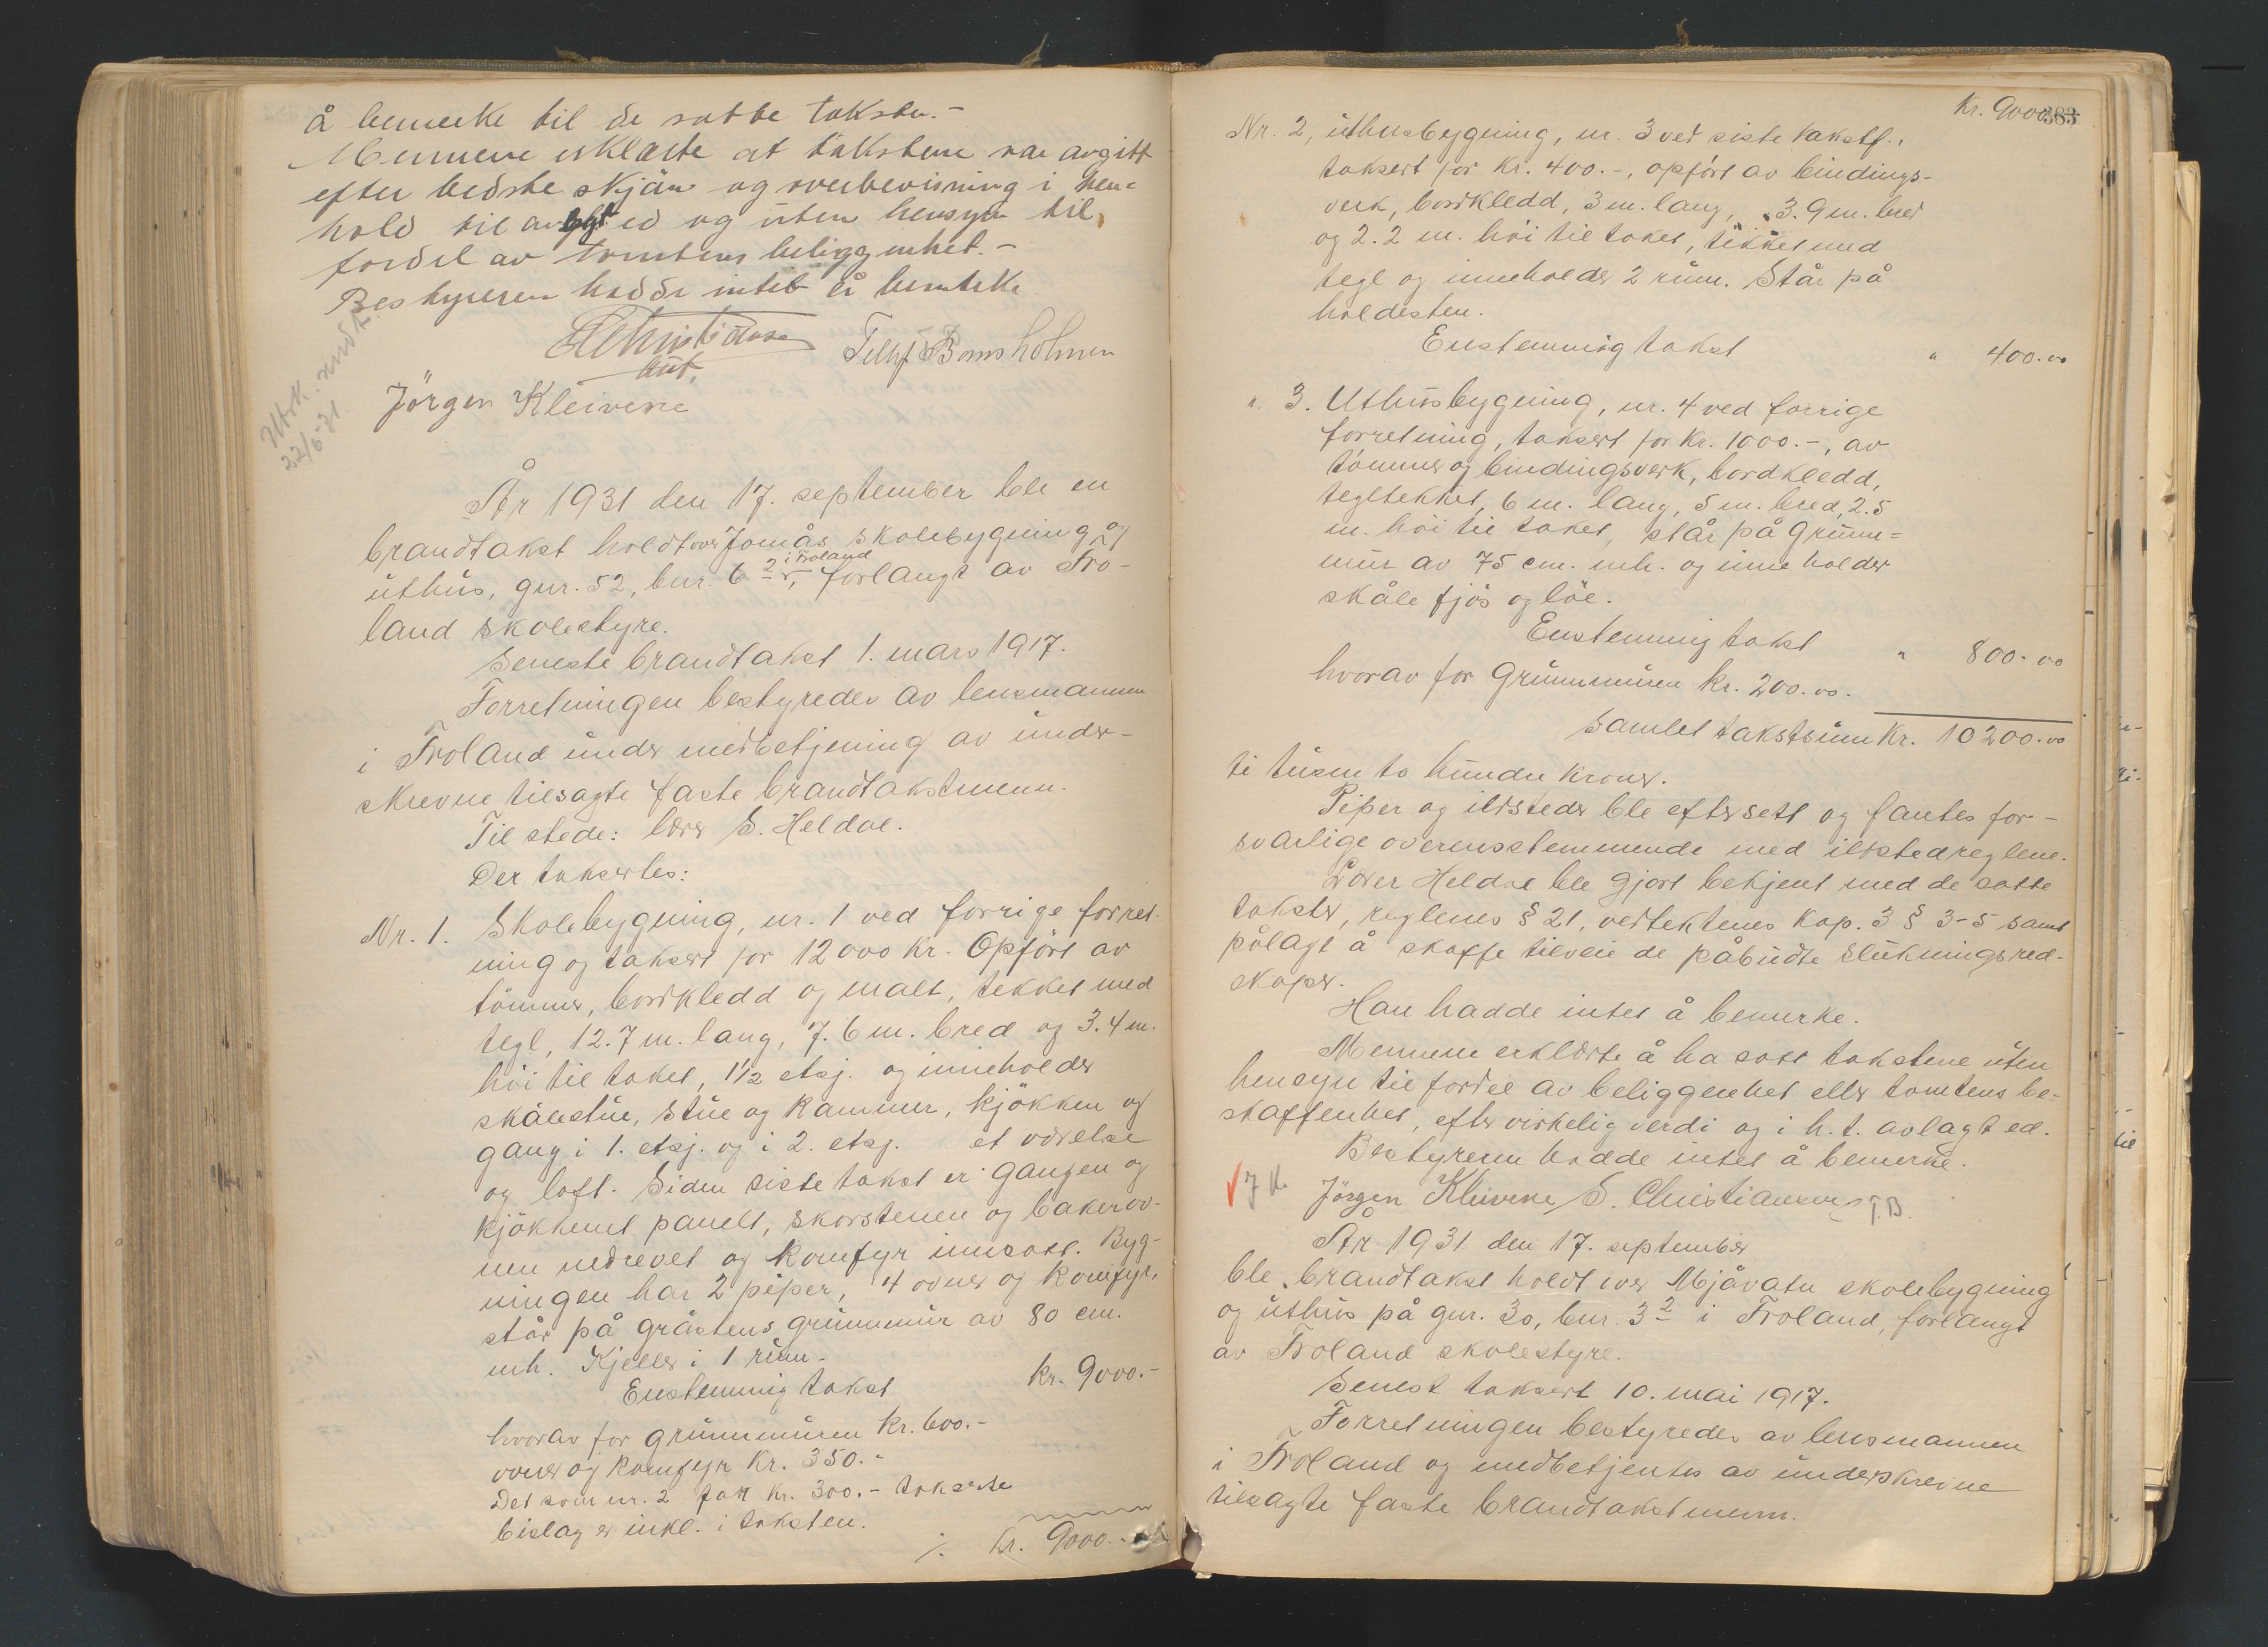 å bemerke til de satte takster.-
Mennene erklærte at takstene var avgitt
efter bedste skjön og overbevisning i hen=
hold til avlagt ed og uten hensyn til
fordel av tomtens beliggenhet.-
Bestyreren hadde intet å bemerke
SChristiansen Tellef Bomsholmen
aut.
Jörgen Kleivene
Utsk. sendt
22/6-31.
År 1931 den 17. september ble en
brandtakst holdt over Jomås skolebygning og
uthus, gnr. 52, bnr. 6 2 i Froland, forlangt av Fro-
land skolestyre.
Seneste brandtakst 1. mars 1917.
Forretningen bestyredes av lensmannen
i Froland under medbetjening av under-
skrevne tilsagte faste brandtakstmenn.
Til stede: lærer S. Heldal.
Der taksertes:
Nr. 1. Skolebygning, nr. 1 ved forrige forret-
ning og taksert for 12000 kr. Opfört av
tömmer, bordkledd og malt, tekket med
tegl, 12.7 m. lang, 7.6 m. bred og 3.4 m.
höi til taket, 1 1/2 etsj. og inneholder
skålestue, stue og kammer, kjökken og
gang i 1. etsj. og i 2. etsj. et værelse
og loft. Siden siste takst er gangen og
kjökkenet panelt, skorstenen og bakerov-
nen nedrevet og komfyr innsatt. Byg-
ningen har 2 piper, 4 ovner og komfyr,
står på gråstens grunnmur av 80 cm.
mh. Kjeller i 1 rum.
Enstemmig takst kr. 9000.-
hvorav for grunnmuren kr. 600.-
ovner og komfyr kr. 350.-
Det som nr. 2 for kr. 300.- takserte
bislag er inkl. i taksten.
./. kr. 9000.-
kr. 9000
383
Nr. 2, uthusbygning, nr. 3 ved siste takstf.,
taksert for kr. 400.-, opfört av bindings-
verk, bordkledd, 3 m. lang, 3.9 m. bred
og 2.2 m. höi til taket, tekket med
tegl og inneholder 2 rum. Står på
holdesten.
Enstemmig takst " 400.00
" 3. Uthusbygning, nr. 4 ved forrige
forretning, taksert for kr. 1000.-, av
tömmer og bindingsverk, bordkledd,
tegltekket, 6 m. lang, 5 m. bred, 2.5
m. höi til taket, står på grunn=
mur av 75 cm. mh. og inneholder
skåle fjös og löe.
Enstemmig takst " 800.00
hvorav for grunnmuren kr. 200.00.
Samlet takstsum kr. 10200.00
ti tusen to hundre kroner.
Piper og ildsteder ble eftersett og fantes for-
svarlige overensstemmende med ildstedreglene.
Lærer Heldal ble gjort bekjent med de satte
takster, reglenes § 21, vedtektenes kap. 3 § 3-5 samt
pålagt å skaffe tilveie de påbudte slukningsred-
skaper.
Han hadde intet å bemerke.
Mennene erklærte å ha satt takstene uten
hensyn til fordel av beliggenhet eller tomtens be-
skaffenhet, efter virkelig verdi og i h. t. avlagt ed.
Bestyreren hadde intet å bemerke.
J K. Jörgen Kleivene S. Christiansen T.B.
År 1931 den 17. september
ble brandtakst holdt over Mjåvatn skolebygning
og uthus på gnr. 30, bnr. 3 2 i Froland, forlangt
av Froland skolestyre.
Senest taksert 10. mai 1917.
Forretningen bestyredes av lensmannen
i Froland og medbetjentes av underskrevne
tilsagte faste brandtakstmenn.